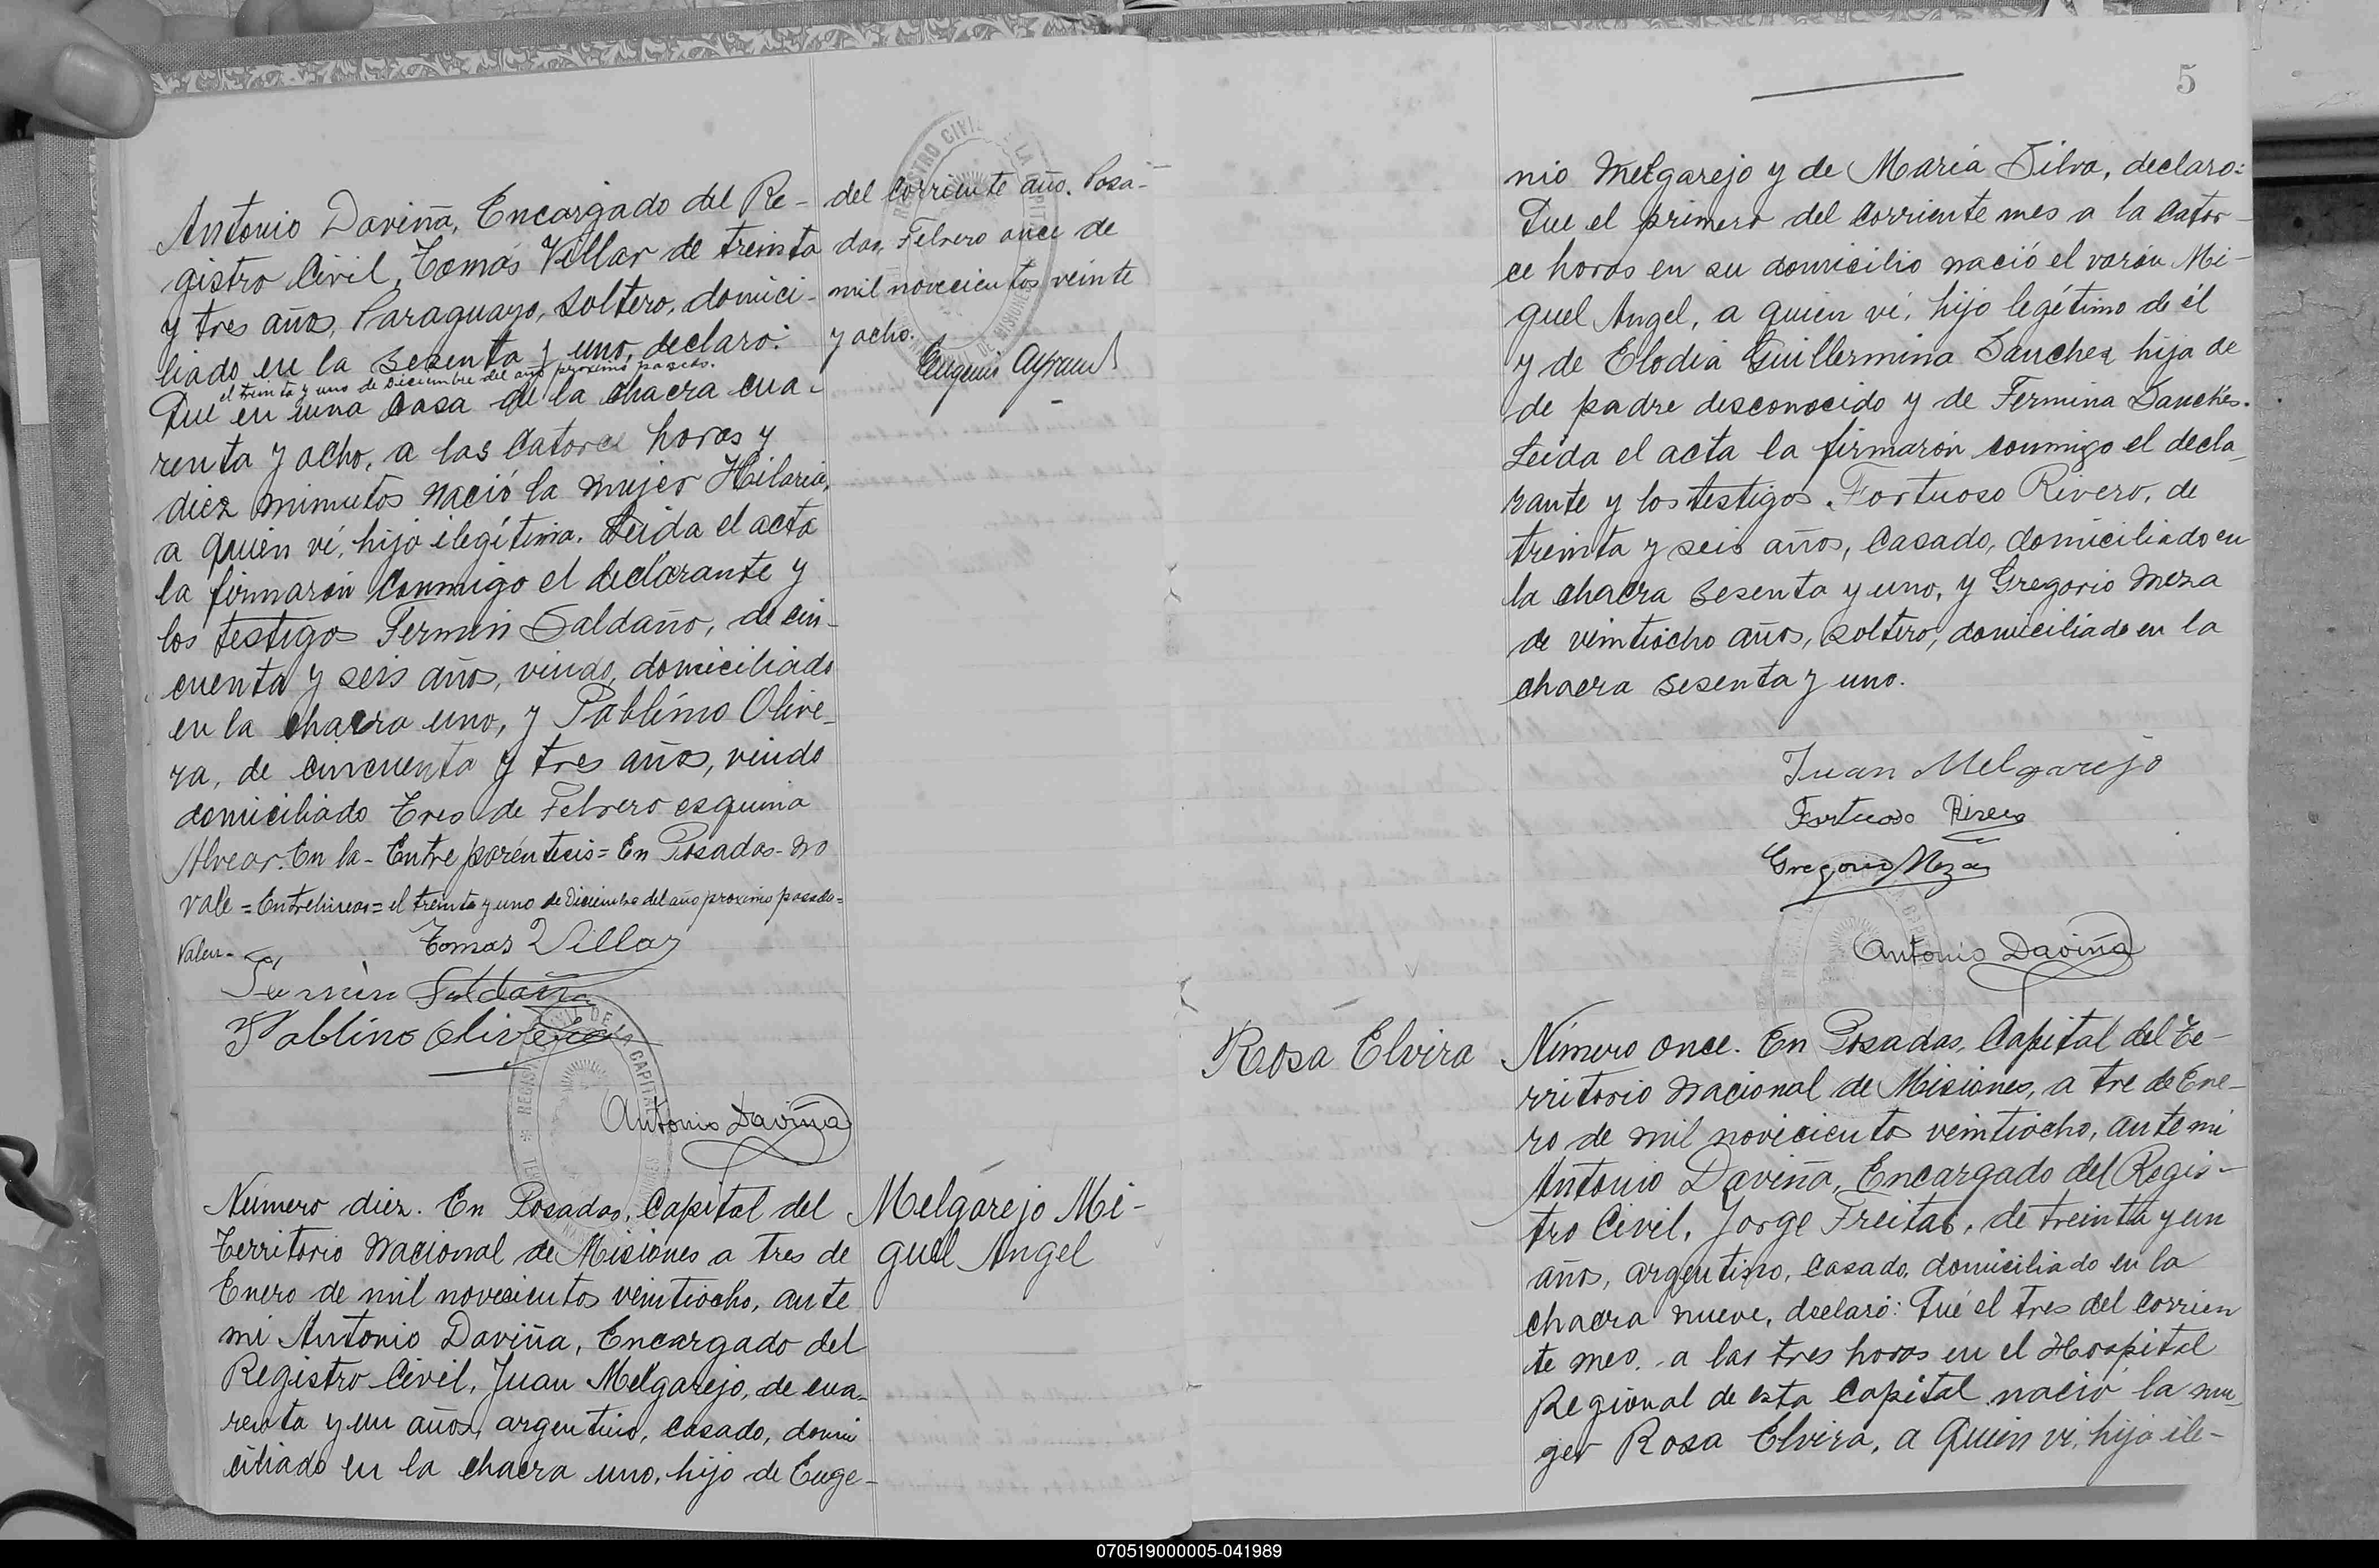 Antonio Daviña, Encargado del Re-
gistro Civil, Tomás Villar de treinta
y tres años, Paraguayo, soltero, domici-
liado en la sesenta y uno, declaro:
el treinta y uno de Diciembre del año proximo pasado.
Que en una casa de la chacra cua-
renta y ocho, a las catorce horas y
diez minutos nació la mujer Hilaria,
a quien ví, hija ilegítima. Leida el acta
la firmarón conmigo el declarante y
los testigos Fermin Saldaño, de cin-
cuenta y seis años, viudo, domiciliado
en la chacra uno, y Pablino Olive-
ra, de cincuenta y tres años, viudo
domiciliado Tres de Febrero esquina
Alvear. En la - Entre paréntecis = En Posadas - no
vale = Entrelineas = el treinta y uno de Diciembre del año proximo pasado =
Valen -
Tomas Villar
Fermin Saldaña
Pablino Olivera
REGISTRO CIVIL DE LA CAPITAL
Antonio Daviña
Número diez. En Posadas, Capital del
Territorio Nacional de Misiones a tres de
Enero de mil novecientos veintiocho, ante
mi Antonio Daviña, Encargado del
Registro Civil, Juan Melgarejo, de cua-
renta y un años, argentino, casado, domi
ciliado en la chacra uno, hijo de Euge-
del corriente año. Posa-
das, Febrero once de
mil novecientos veinte
y ocho.
REGISTRO CIVIL DE LA CAPITAL
Eugenio
Melgarejo Mi-
guel Angel
5
nio Melgarejo y de María Silva, declaro:
Que el primero del corriente mes a la cator-
ce horas en su domicilio nació el varón Mi-
guel Angel, a quien ví, hijo legétimo de él
y de Elodia Guillermina Sanchez hija de
de padre desconocido y de Fermina Sanches.
Leida el acta la firmarón conmigo el decla-
rante y los testigos. Fortuoso Rivero, de
treinta y seis años, casado, domiciliado en
la chacra sesenta y uno, y Gregorio Meza
de veintiocho años, soltero, domiciliado en la
chacra sesenta y uno.
Juan Melgarejo
Fortuoso Rivero
Gregorio Meza
Antonio Daviña
Rosa Elvira
Número once. En Posadas, Capital del Te-
rritorio Nacional de Misiones, a tre de Ene-
ro de mil novicientos veintiocho, ante mi
Antonio Daviña, Encargado del Regis-
tro Civil, Jorge Freitas, de treinta y un
años, argentino, casado, domiciliado en la
chacra nueve, declaró: Qué el tres del corrien
te mes, a las tres horas en el Hospital
Regional de esta Capital nació la mu-
ger Rosa Elvira, a quien ví, hija ile-
070519000005-041989